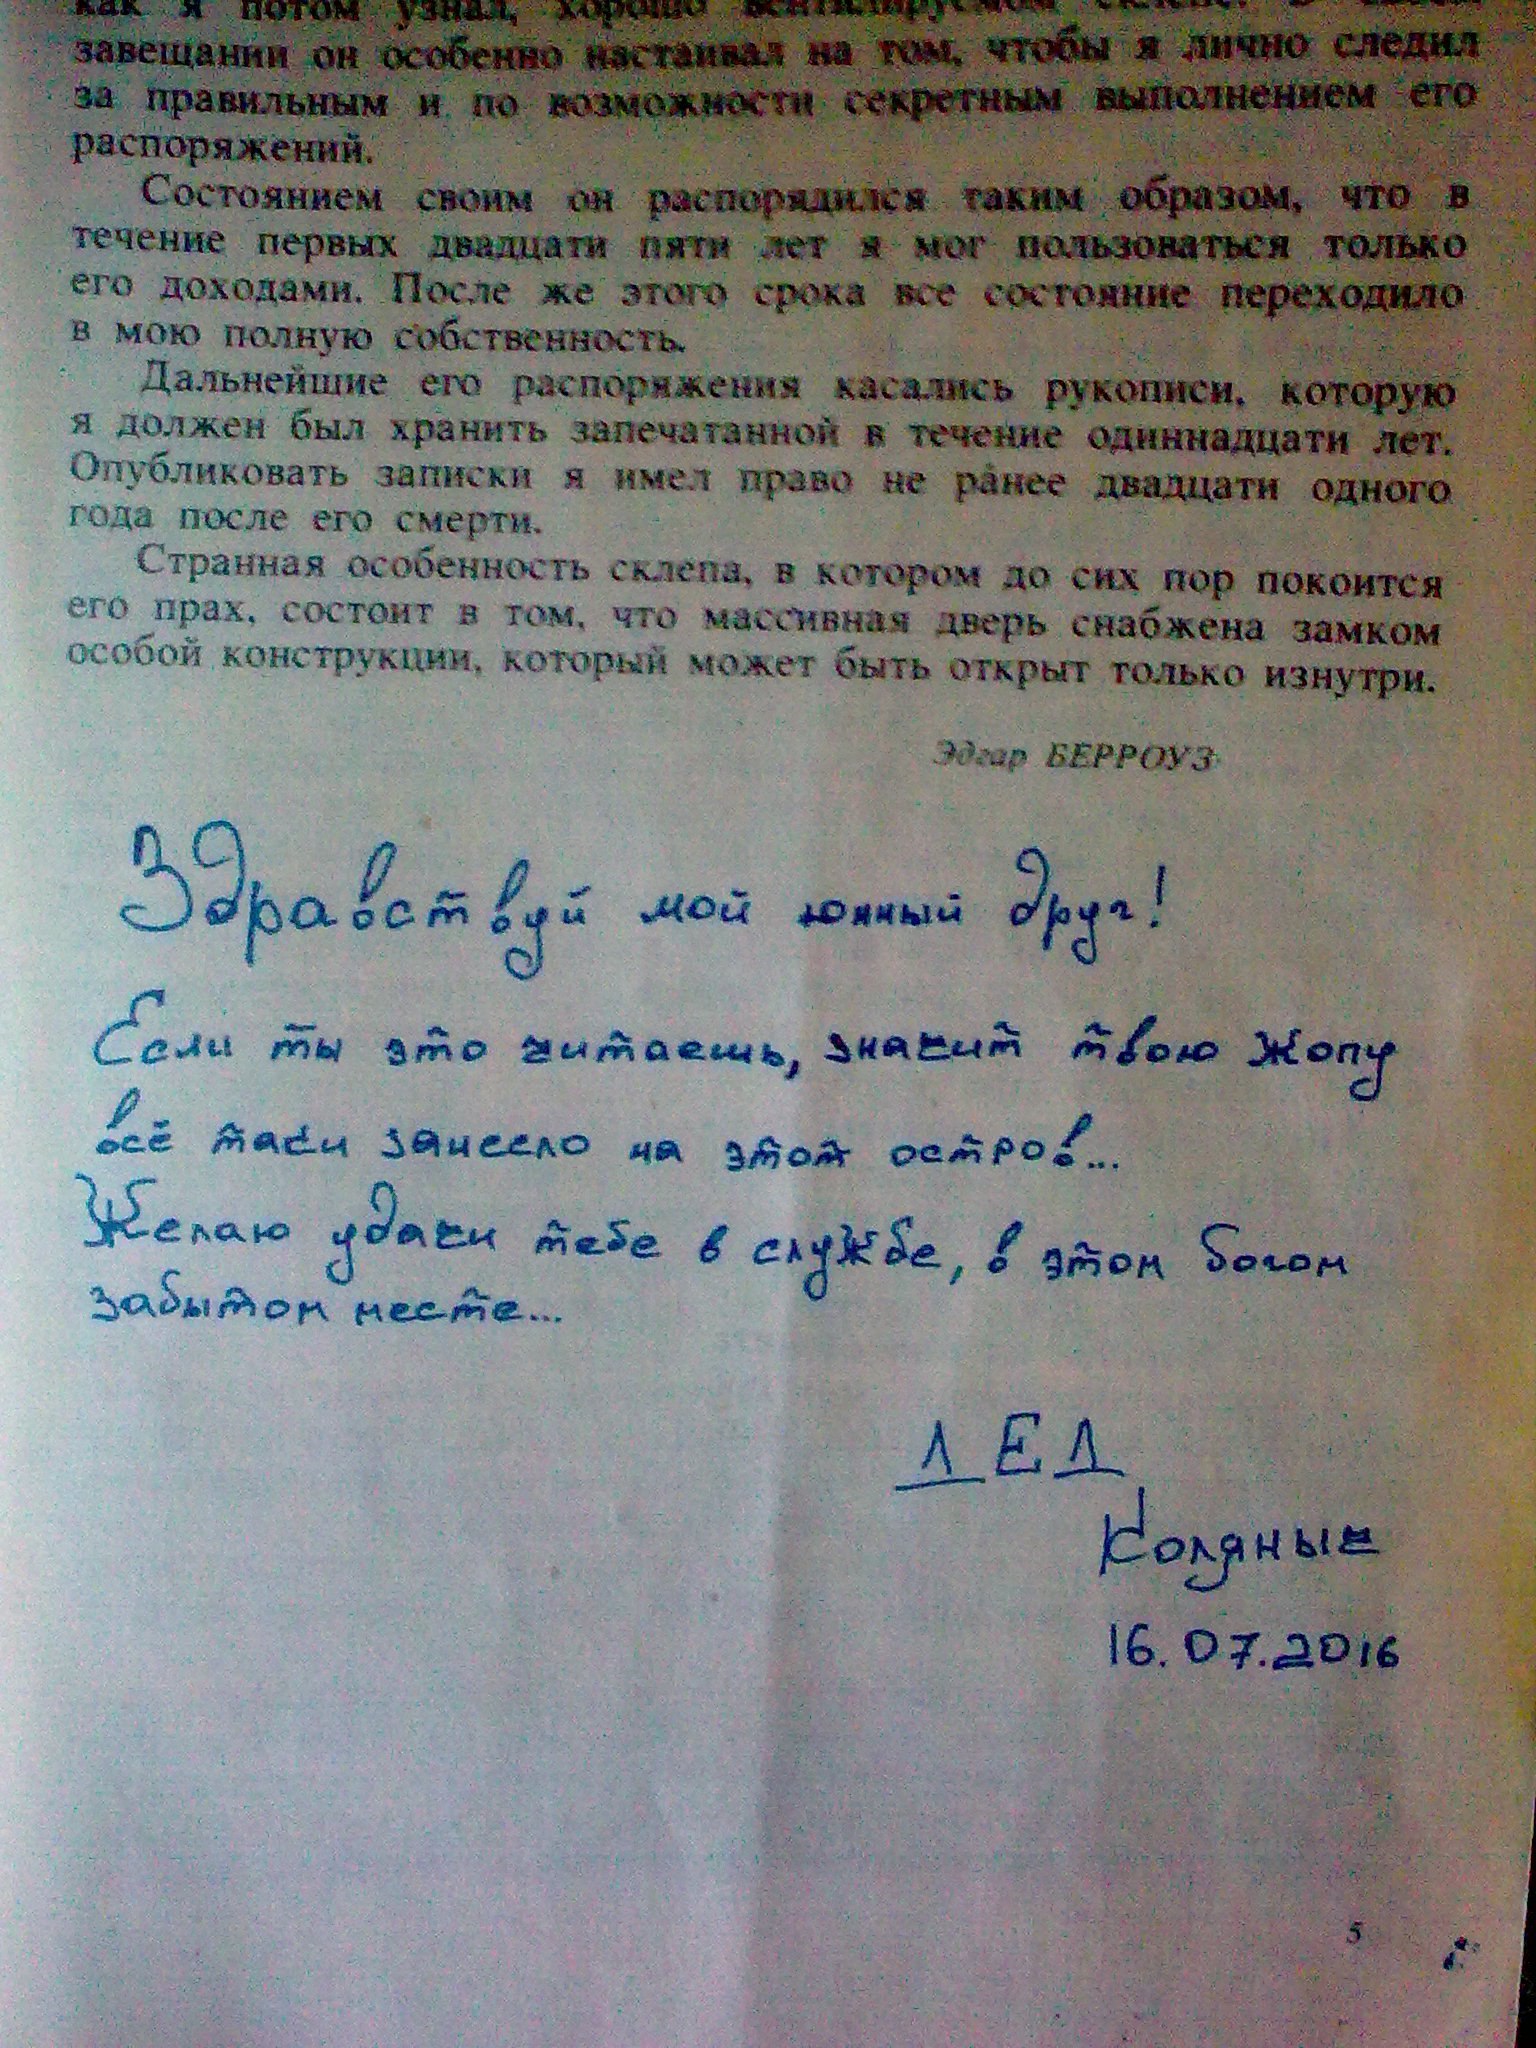 как я потом узнал, хорошо вентилируемом склепе. В своем
завещании он особенно настаивал на том, чтобы я лично следил
за правильным и по возможности секретным выполнением его
распоряжений.
Состоянием своим он распорядился таким образом, что в
течение первых двадцати пяти лет я мог пользоваться только
его доходами. После же этого срока все состояние переходило
в мою полную собственность.
Дальнейшие его распоряжения касались рукописи, которую
я должен был хранить запечатанной в течение одиннадцати лет.
Опубликовать записки я имел право не ранее двадцати одного
года после его смерти.
Странная особенность склепа, в котором до сих пор покоится
его прах, состоит в том, что массивная дверь снабжена замком
особой конструкции, который может быть открыт только изнутри.
Эдгар БЕРРОУЗ
Здравствуй мой юнный друг!
Если ты это читаешь, значит твою жопу
всё таки занесло на этот остров...
Желаю удачи тебе в службе, в этом богом
забытом месте...
ДЕД
Коляныч
16.07.2016
5